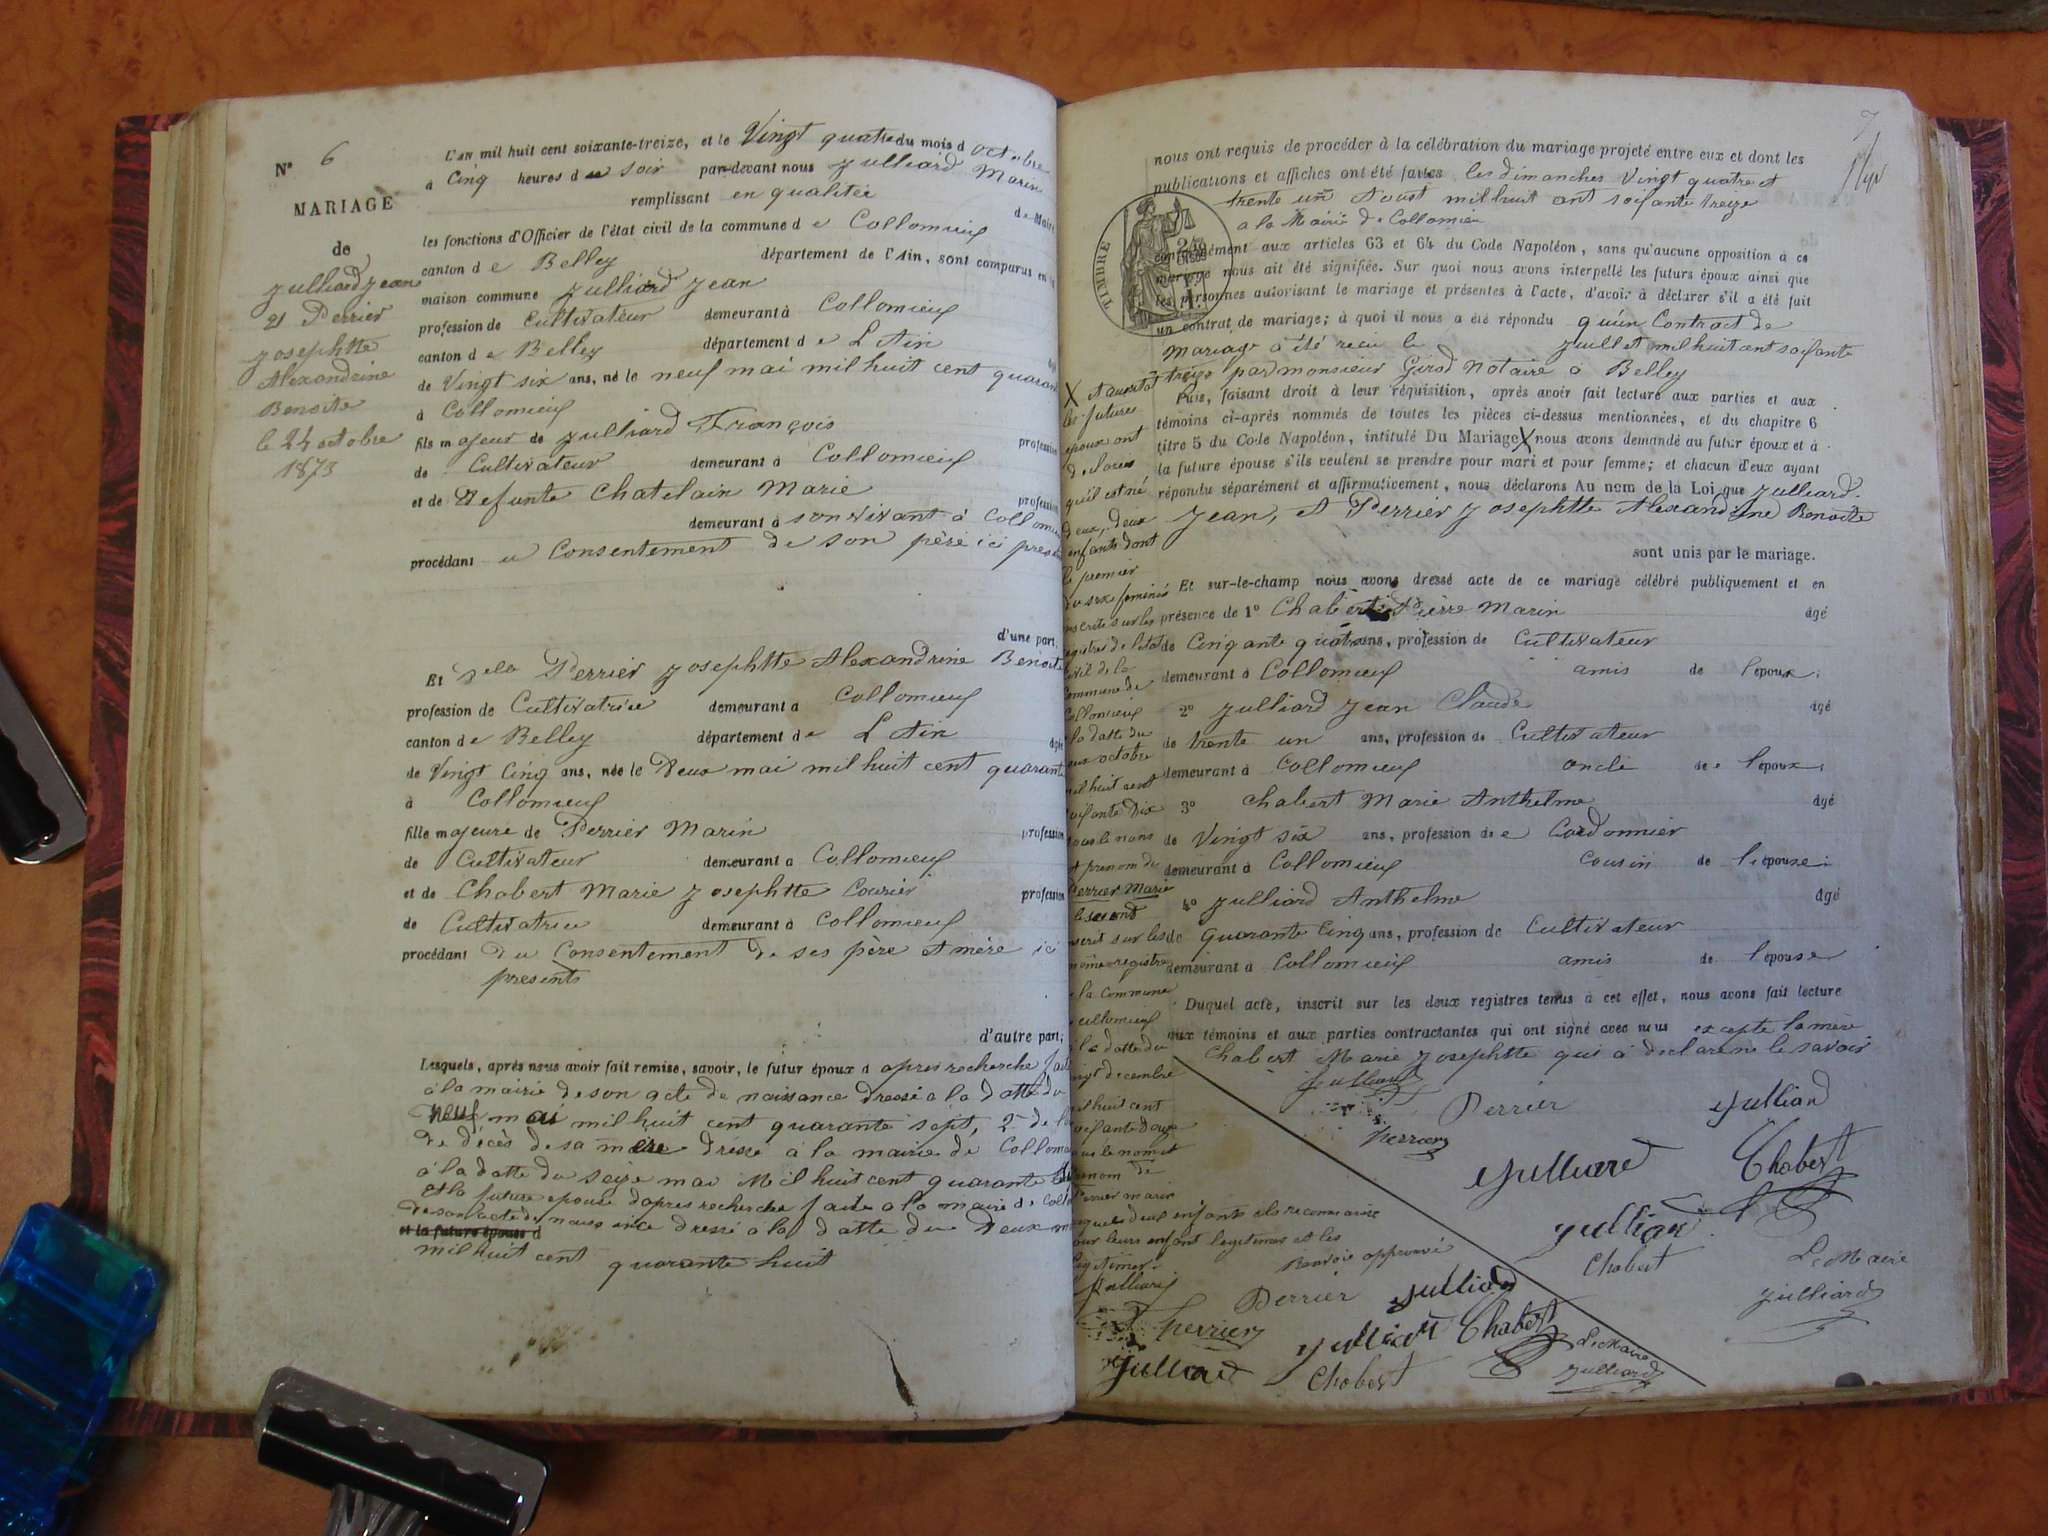 N° 6
MARIAGE
de
Julliard Jean
et Perrier
Josephtte
Alexandrine
Benoite
le 24 octobre
1873
L'an mil huit cent soixante-treize, et le Vingt quatre du mois d octobre
à Cinq heures d u soir par-devant nous Julliard Marin
remplissant en qualitée de Maire
les fonctions d'Officier de l'état civil de la commune d e Collomieux
canton d e Belley département de l'Ain, sont comparus en la
maison commune Julliard Jean
profession de Cultivateur demeurant à Collomieux
canton d e Belley département d e L Ain
de Vingt six ans, né le neuf mai mil huit cent quarante
à Collomieux
fils majeur de Julliard François profession
de Cultivateur demeurant à Collomieux
et de Defunte Chatelain Marie profession
demeurant à son vivant à Collomieux
procédant u Consentement de son père ici present
d'une part,
Et Dela Perrier Josephtte Alexandrine Benoite
profession de Cultivatrice demeurant à Collomieux
canton d e Belley département d e L Ain âgée
de Vingt Cinq ans, née le Deux mai mil huit cent quarante
à Collomieux
fille majeure de Perrier Marin profession
de Cultivateur demeurant à Collomieux
et de Chabert Marie Josephtte Courier profession
de Cultivatrice demeurant à Collomieux
procédant du Consentement de ses père et mère ici
presents
d'autre part;
Lesquels, après nous avoir fait remise, savoir, le futur époux d apres recherche faite
à la mairie de son acte de naissance dressé a la datte du
Neuf mai mil huit cent quarante sept, 2° de l
de décès de sa mere dréssé à la mairie de Collomieux
à la datte du seize mai Mil huit cent quarante
et la future epouse dapres recherche faite a la mairie de Coll
de son acte de naissance dressé à la datte du Deux mai
et la future épouse d
mil huit cent quarante huit
7
nous ont requis de procéder à la célébration du mariage projeté entre eux et dont les
publications et affiches ont été faites les dimanches Vingt quatre et
trente un Aoust mil huit cent soixante treize
a la Mairie de Collomieu
TIMBRE
conformément aux articles 63 et 64 du Code Napoléon, sans qu'aucune opposition à ce
mariage nous ait été signifiée. Sur quoi nous avons interpellé les futurs époux ainsi que
les personnes autorisant le mariage et présentes à l'acte, d'avoir à déclarer s'il a été fait
un contrat de mariage; à quoi il nous a été répondu qu'un Contract de
mariage à été recu le juillet mil huit cent soixante
treize par monsieur Girod Notaire à Belley
Puis, faisant droit à leur réquisition, après avoir fait lecture aux parties et aux
témoins ci-après nommés de toutes les pièces ci-dessus mentionnées, et du chapitre 6
titre 5 du Code Napoléon, intitulé Du Mariage X nous avons demandé au futur époux et à
la future épouse s'ils veulent se prendre pour mari et pour femme; et chacun d'eux ayant
répondu séparément et affirmativement, nous déclarons Au nom de la Loi que Julliard
Jean, et Perrier Josephtte Alexandrine Benoite
sont unis par le mariage.
Et sur-le-champ nous avons dressé acte de ce mariage célébré publiquement et en
présence de 1° Chabert Pierre Marin âgé
de Cinqante quatre ans, profession de Cultivateur
demeurant à Collomieux amis de l'époux;
2° Julliard Jean Claude âgé
de trente un ans, profession de Cultivateur
demeurant à Collomieux oncle de l'époux;
3° Chabert Marie Anthelme âgé
de Vingt six ans, profession de Cordonnier
demeurant à Collomieux cousin de l'épouse;
4° Julliard Anthelme âgé
de Quarante Cinq ans, profession de Cultivateur
demeurant à Collomieux amis de l'épouse
Duquel acte, inscrit sur les deux registres tenus à cet effet, nous avons fait lecture
aux témoins et aux parties contractantes qui ont signé avec nous excepte la mère
Chabert Marie Josephtte qui à declare ne le savoir
X
les futures
epoux ont
declares
qu'il est né
deux, deux
enfants dont
le premier
du sexe feminin
inscrite sur les
registres de l'etat
civil de la
Commune de
Collomieux
a la datte du
octobre
mil huit cent
soixante dix
sous le nom
et prenom de
Perrier Marie
le second
inscrit sur les
même registre
de la commune
Collomieux
à la datte du
vingt decembre
mil huit cent
soixante douze
sous le nom et
prenom de
Perrier marin
lesquels deux enfants ils reconnaisse
pour leurs enfant legitimes et les
légitimer.
Renvoie approuvé
Julliard
Perrier
Jullian
Perrier
Julliard
Chabert
Jullian
Chabert
Le Maire
Julliard
Julliard
Perrier
Julliard
Perrier
Julliard
Chabert
Le Maire
Julliard
Chabert
Julliard